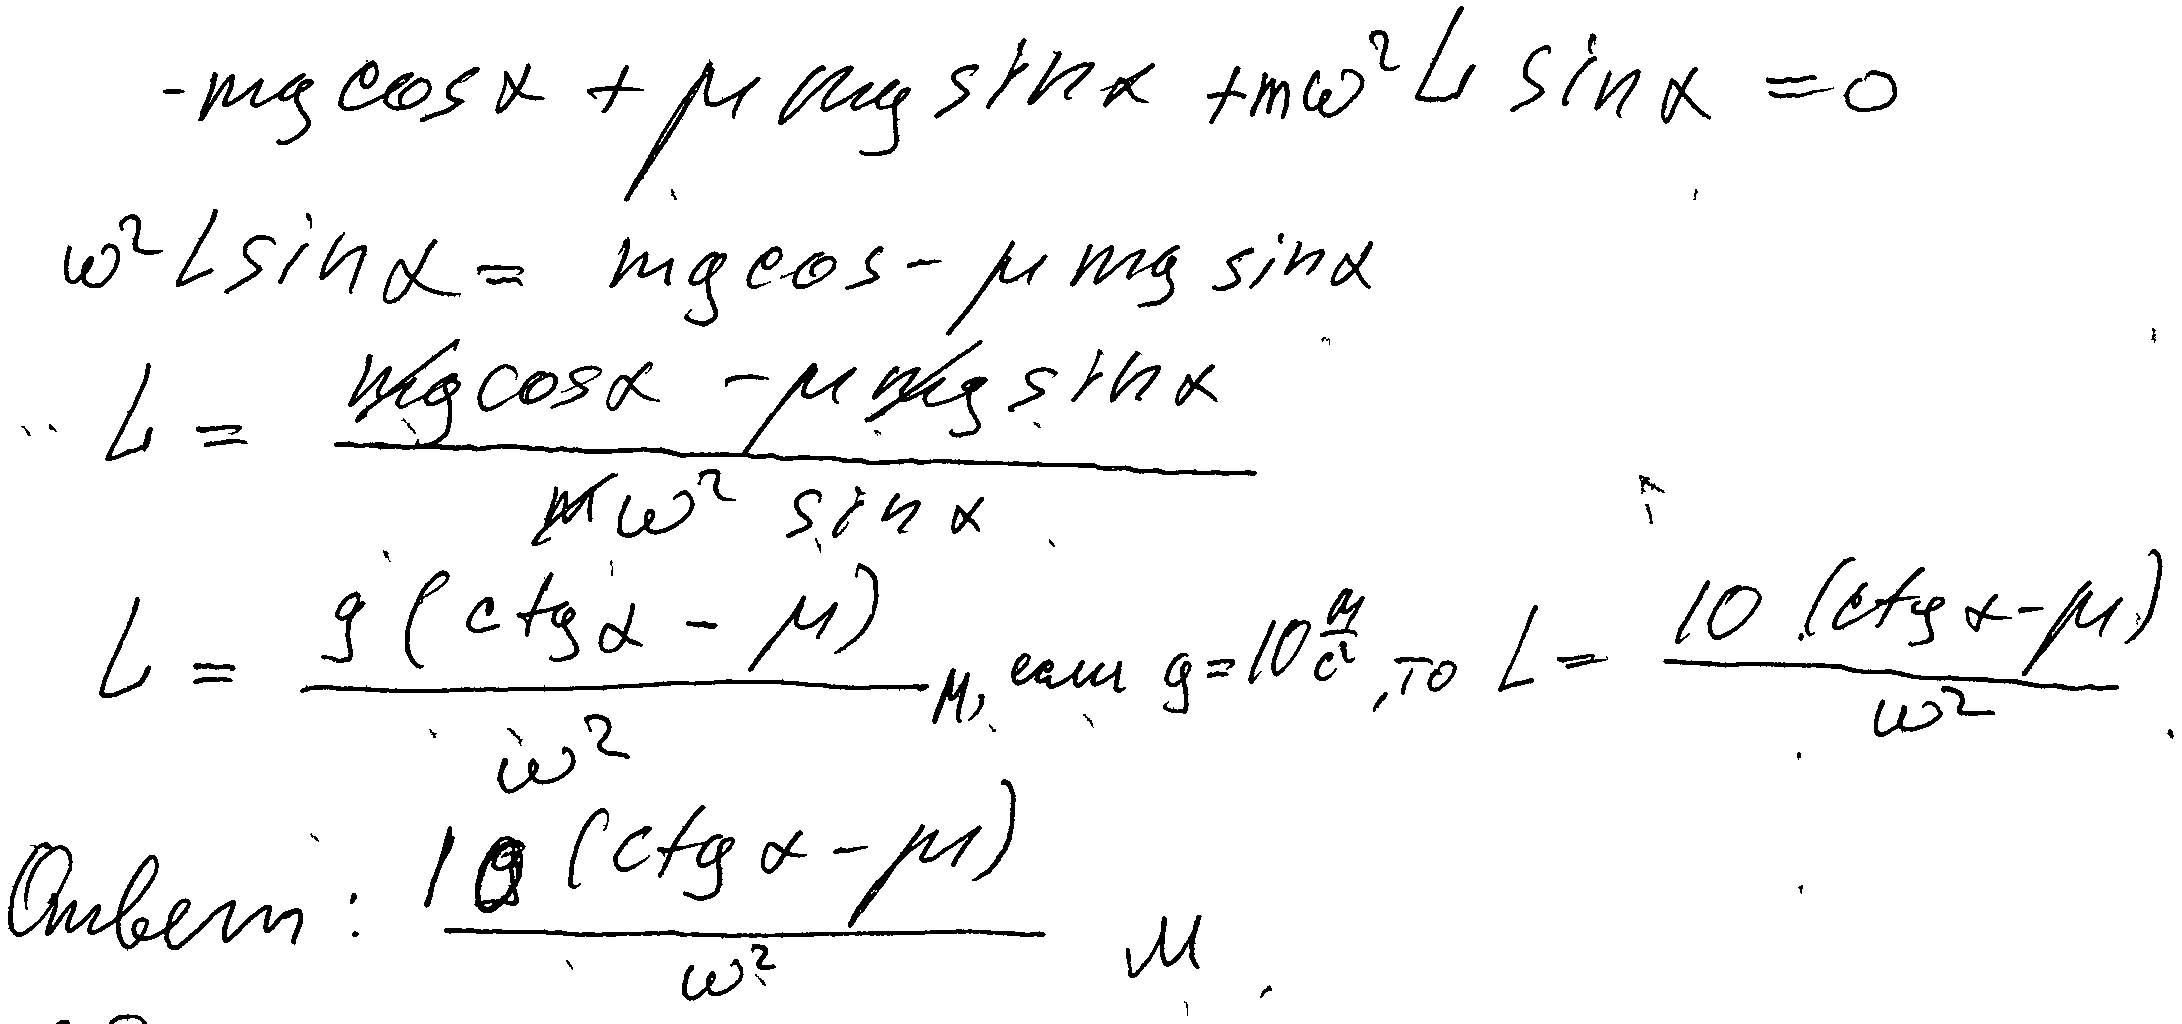 -mg cos α + μ mg sin α + mω² L sin α = 0
ω² L sin α = mg cos - μ mg sin α
L = (mg cos α - μ mg sin α) / (mω² sin α)
L = g (ctg α - μ) / ω² м, если g = 10 м/с², то L = 10 (ctg α - μ) / ω²
Ответ: 10 (ctg α - μ) / ω² м.